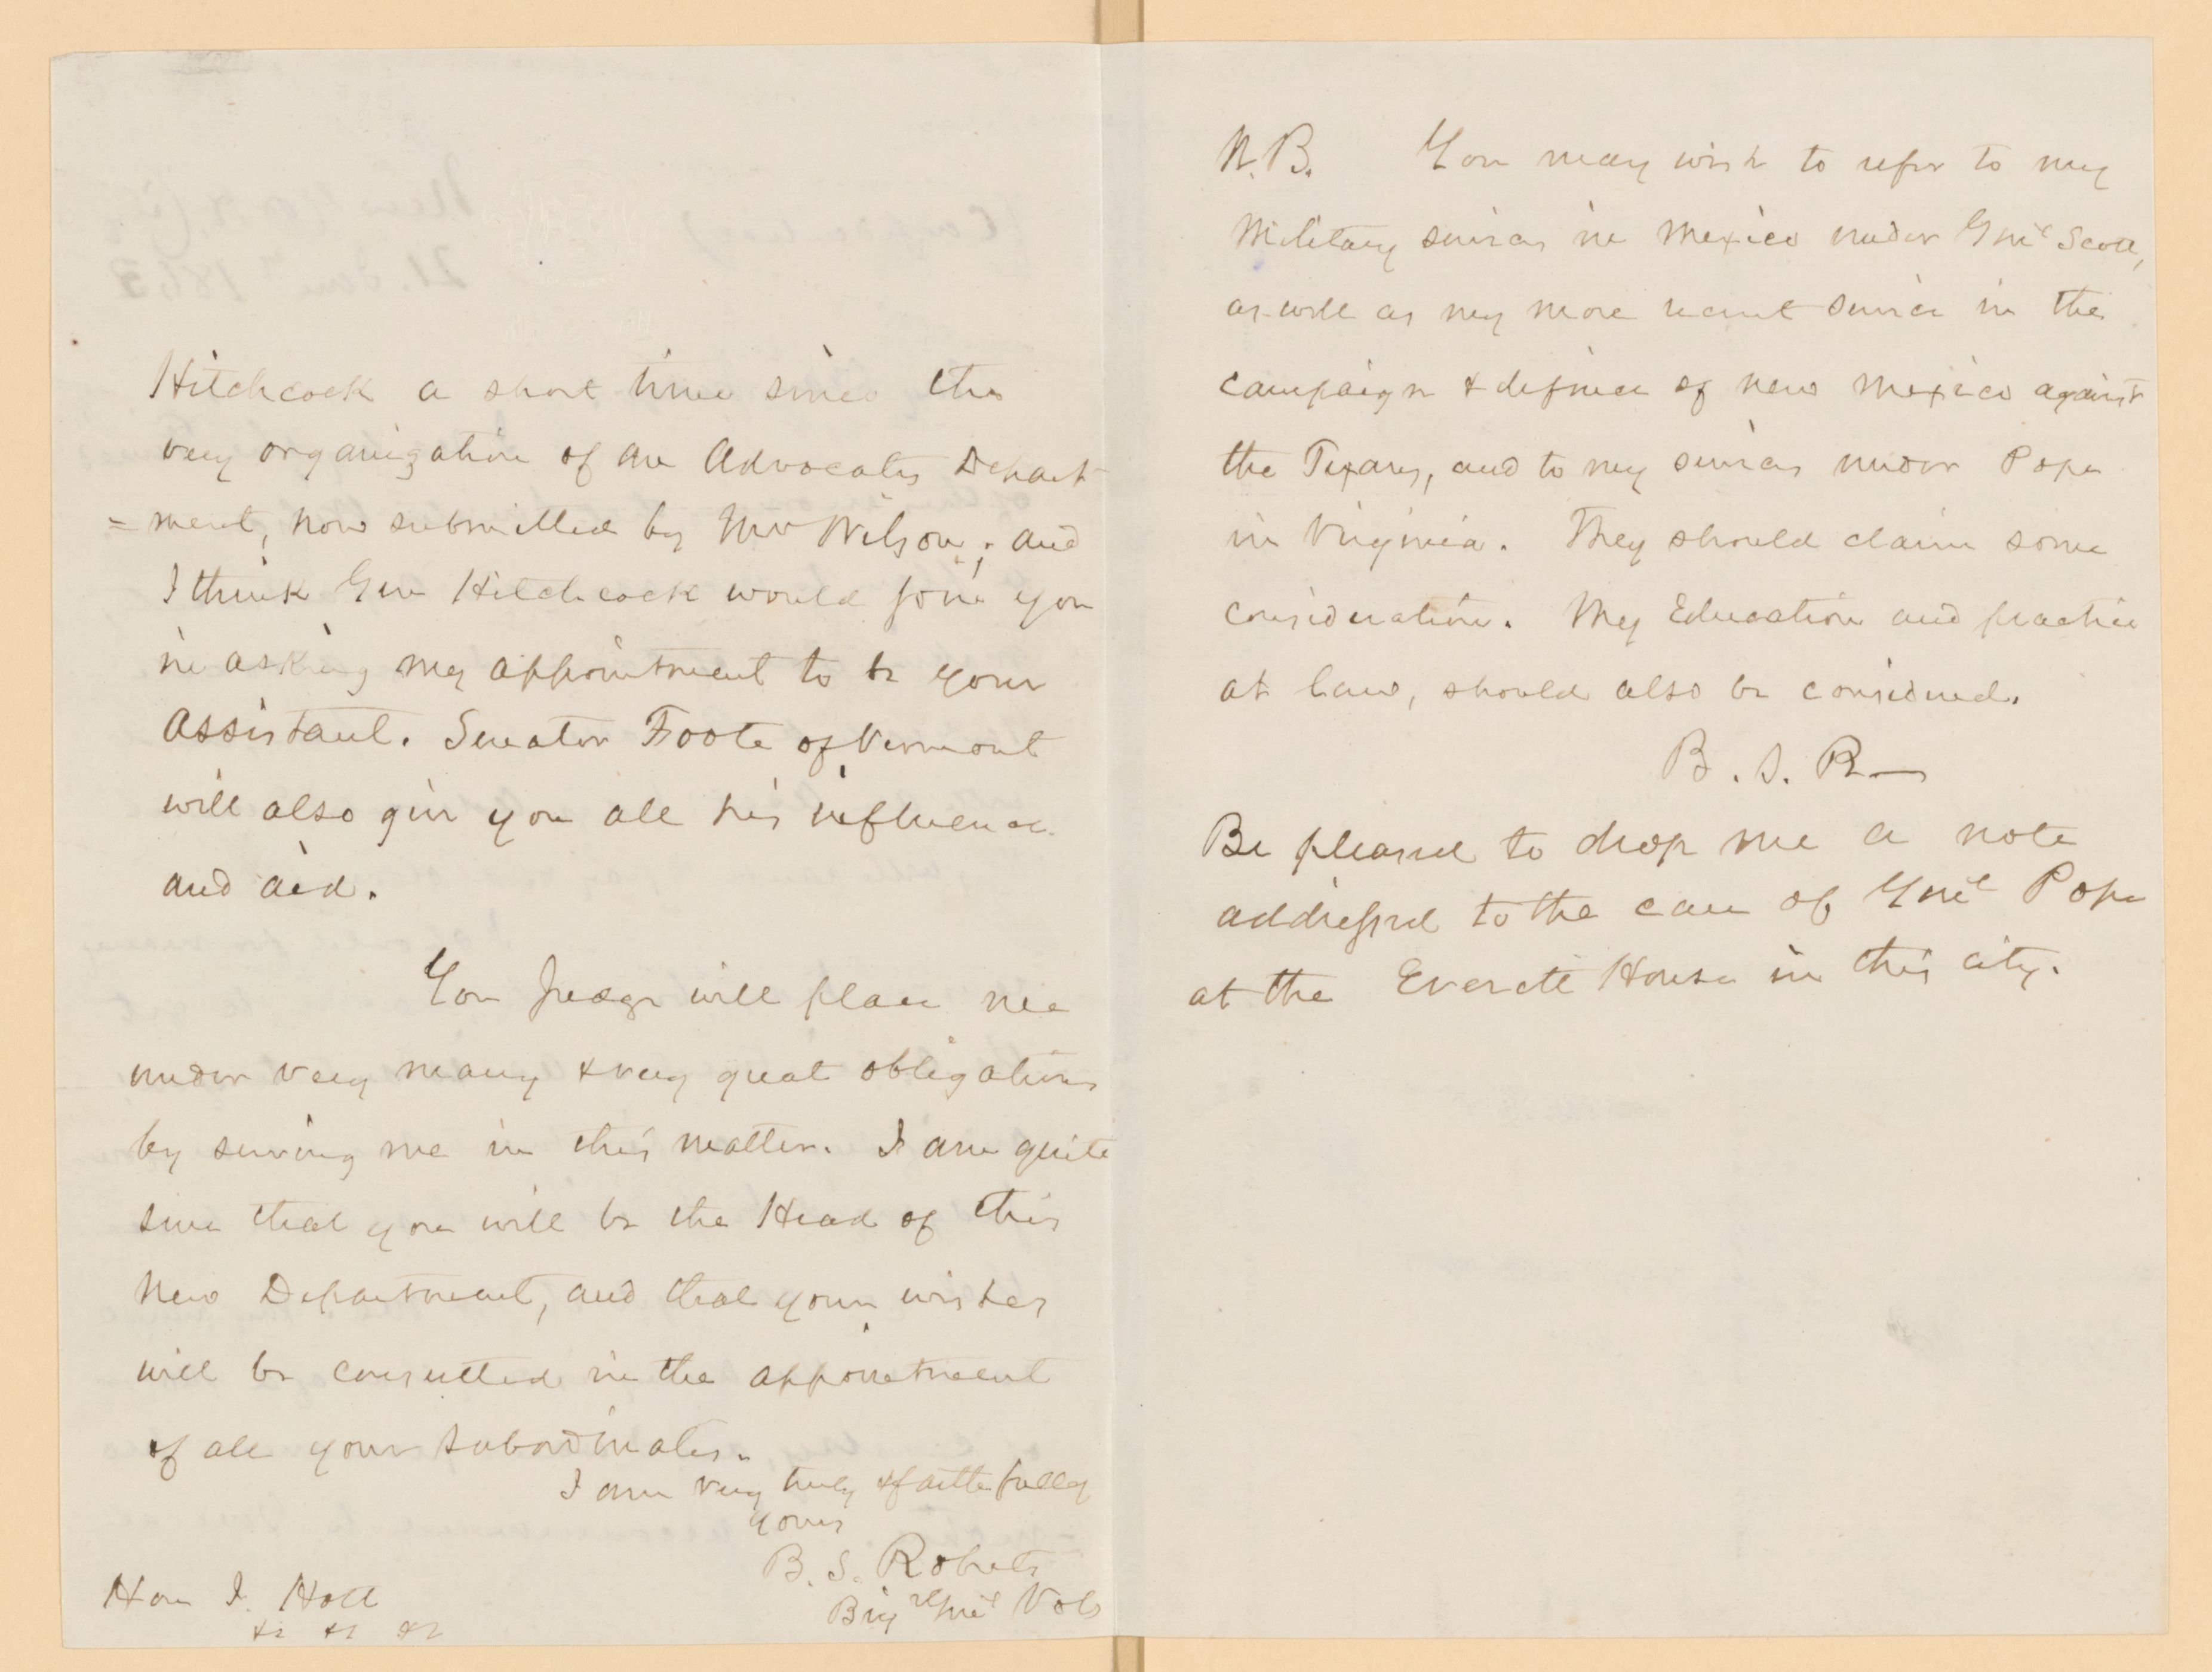 Hitchcock a short time since the
very organization of an Advocates Depart
= ment, now submitted by Mr Wilson; and
I think Gen Hitchcock would join you
in asking my appointment to be your
Assistant. Senator Foote of Vermont
will also give you all his influence
and aid.
You Judge will place me
under very many & very great obligations
by serving me in this matter. I am quite
sure that you will be the Head of this
New Department, and that your wishes
will be consulted in the appointment
of all your subordinates.
I am very truly & faithfully
yours
B. S. Roberts
Brig Genl Vols
Hon J. Holt
&c &c &c
N.B. You may wish to refer to my
Military services in Mexico under Genl Scott,
as well as my more recent service in the
campaign & defence of New Mexico against
the Texans, and to my services under Pope
in Virginia. They should claim some
consideration. My Education and practice
at law, should also be considered.
B. S. R—
Be pleased to drop me a note
addressed to the care of Genl Pope
at the Everett House in this city.